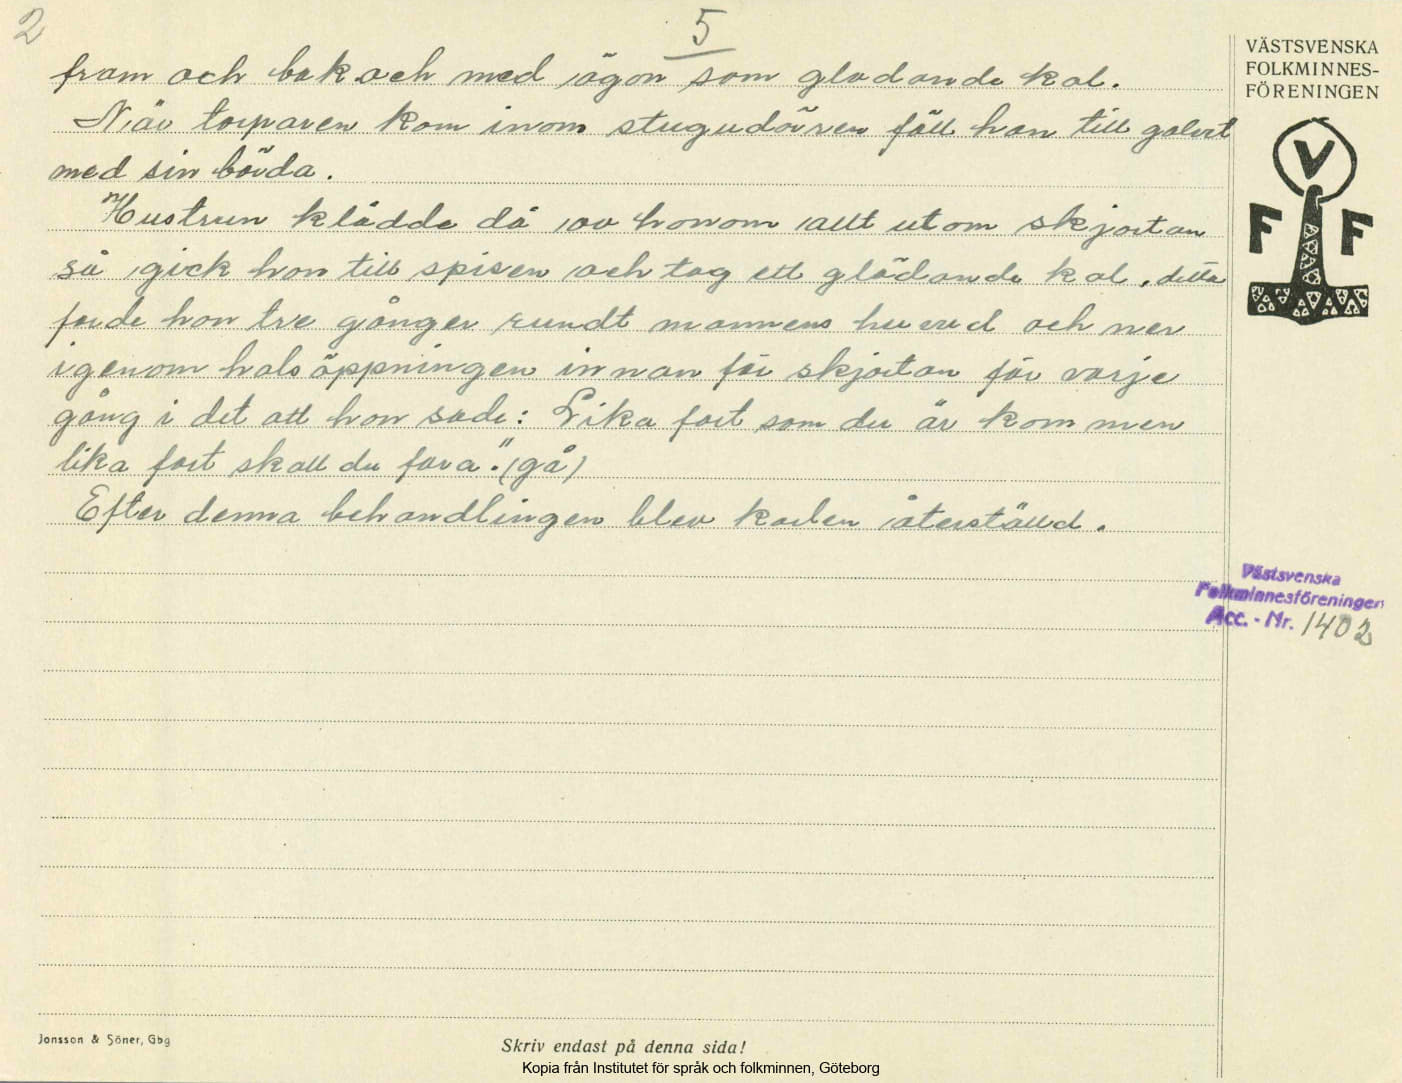 2
5
fram och bak och med ögon som glodande kol.
När torparen kom inom stugudörren föll han till golvet
med sin börda.
Hustrun klädde då av honom allt utom skjortan
så gick hon till spisen och tog ett glödande kol, detta
forde hon tre gånger rundt mannens huvud och ner
igenom halsöppningen innan för skjortan för varje
gång i det att hon sade: "Lika fort som du är kommen
lika fort skall du fara". (gå)
Efter denna behandlingen blev karlen återställd.
VÄSTSVENSKA
FOLKMINNES-
FÖRENINGEN
V
F F
Västsvenska
Folkminnesföreningen
Acc. - Nr. 1402
Jonsson & Söner, Gbg
Skriv endast på denna sida!
Kopia från Institutet för språk och folkminnen, Göteborg